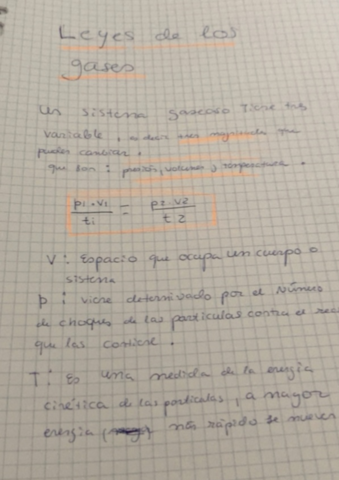 Leyes de los
gases
Un sistema gaseoso tiene tres
variable, es decir tres magnitudes que
pueden cambiar.
que son : presión, volumen y temperatura.
p1 . v1 / t1 = p2 . v2 / t2
V : Espacio que ocupa un cuerpo o
sistema
p : viene determinado por el número
de choques de las partículas contra el
que las contiene.
T : Es una medida de la energía
cinética de las partículas, a mayor
energía más rápido se mueven